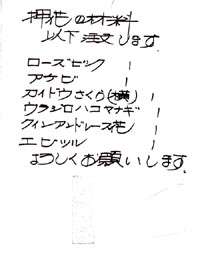 押花の材料
以下注文します
ローズピンク 1
アケビ 1
カイドウさくら(横) 1
ウラジロハコヤナギ 1
クインアンドレース花 1
エビヅル 1
よろしくお願いします